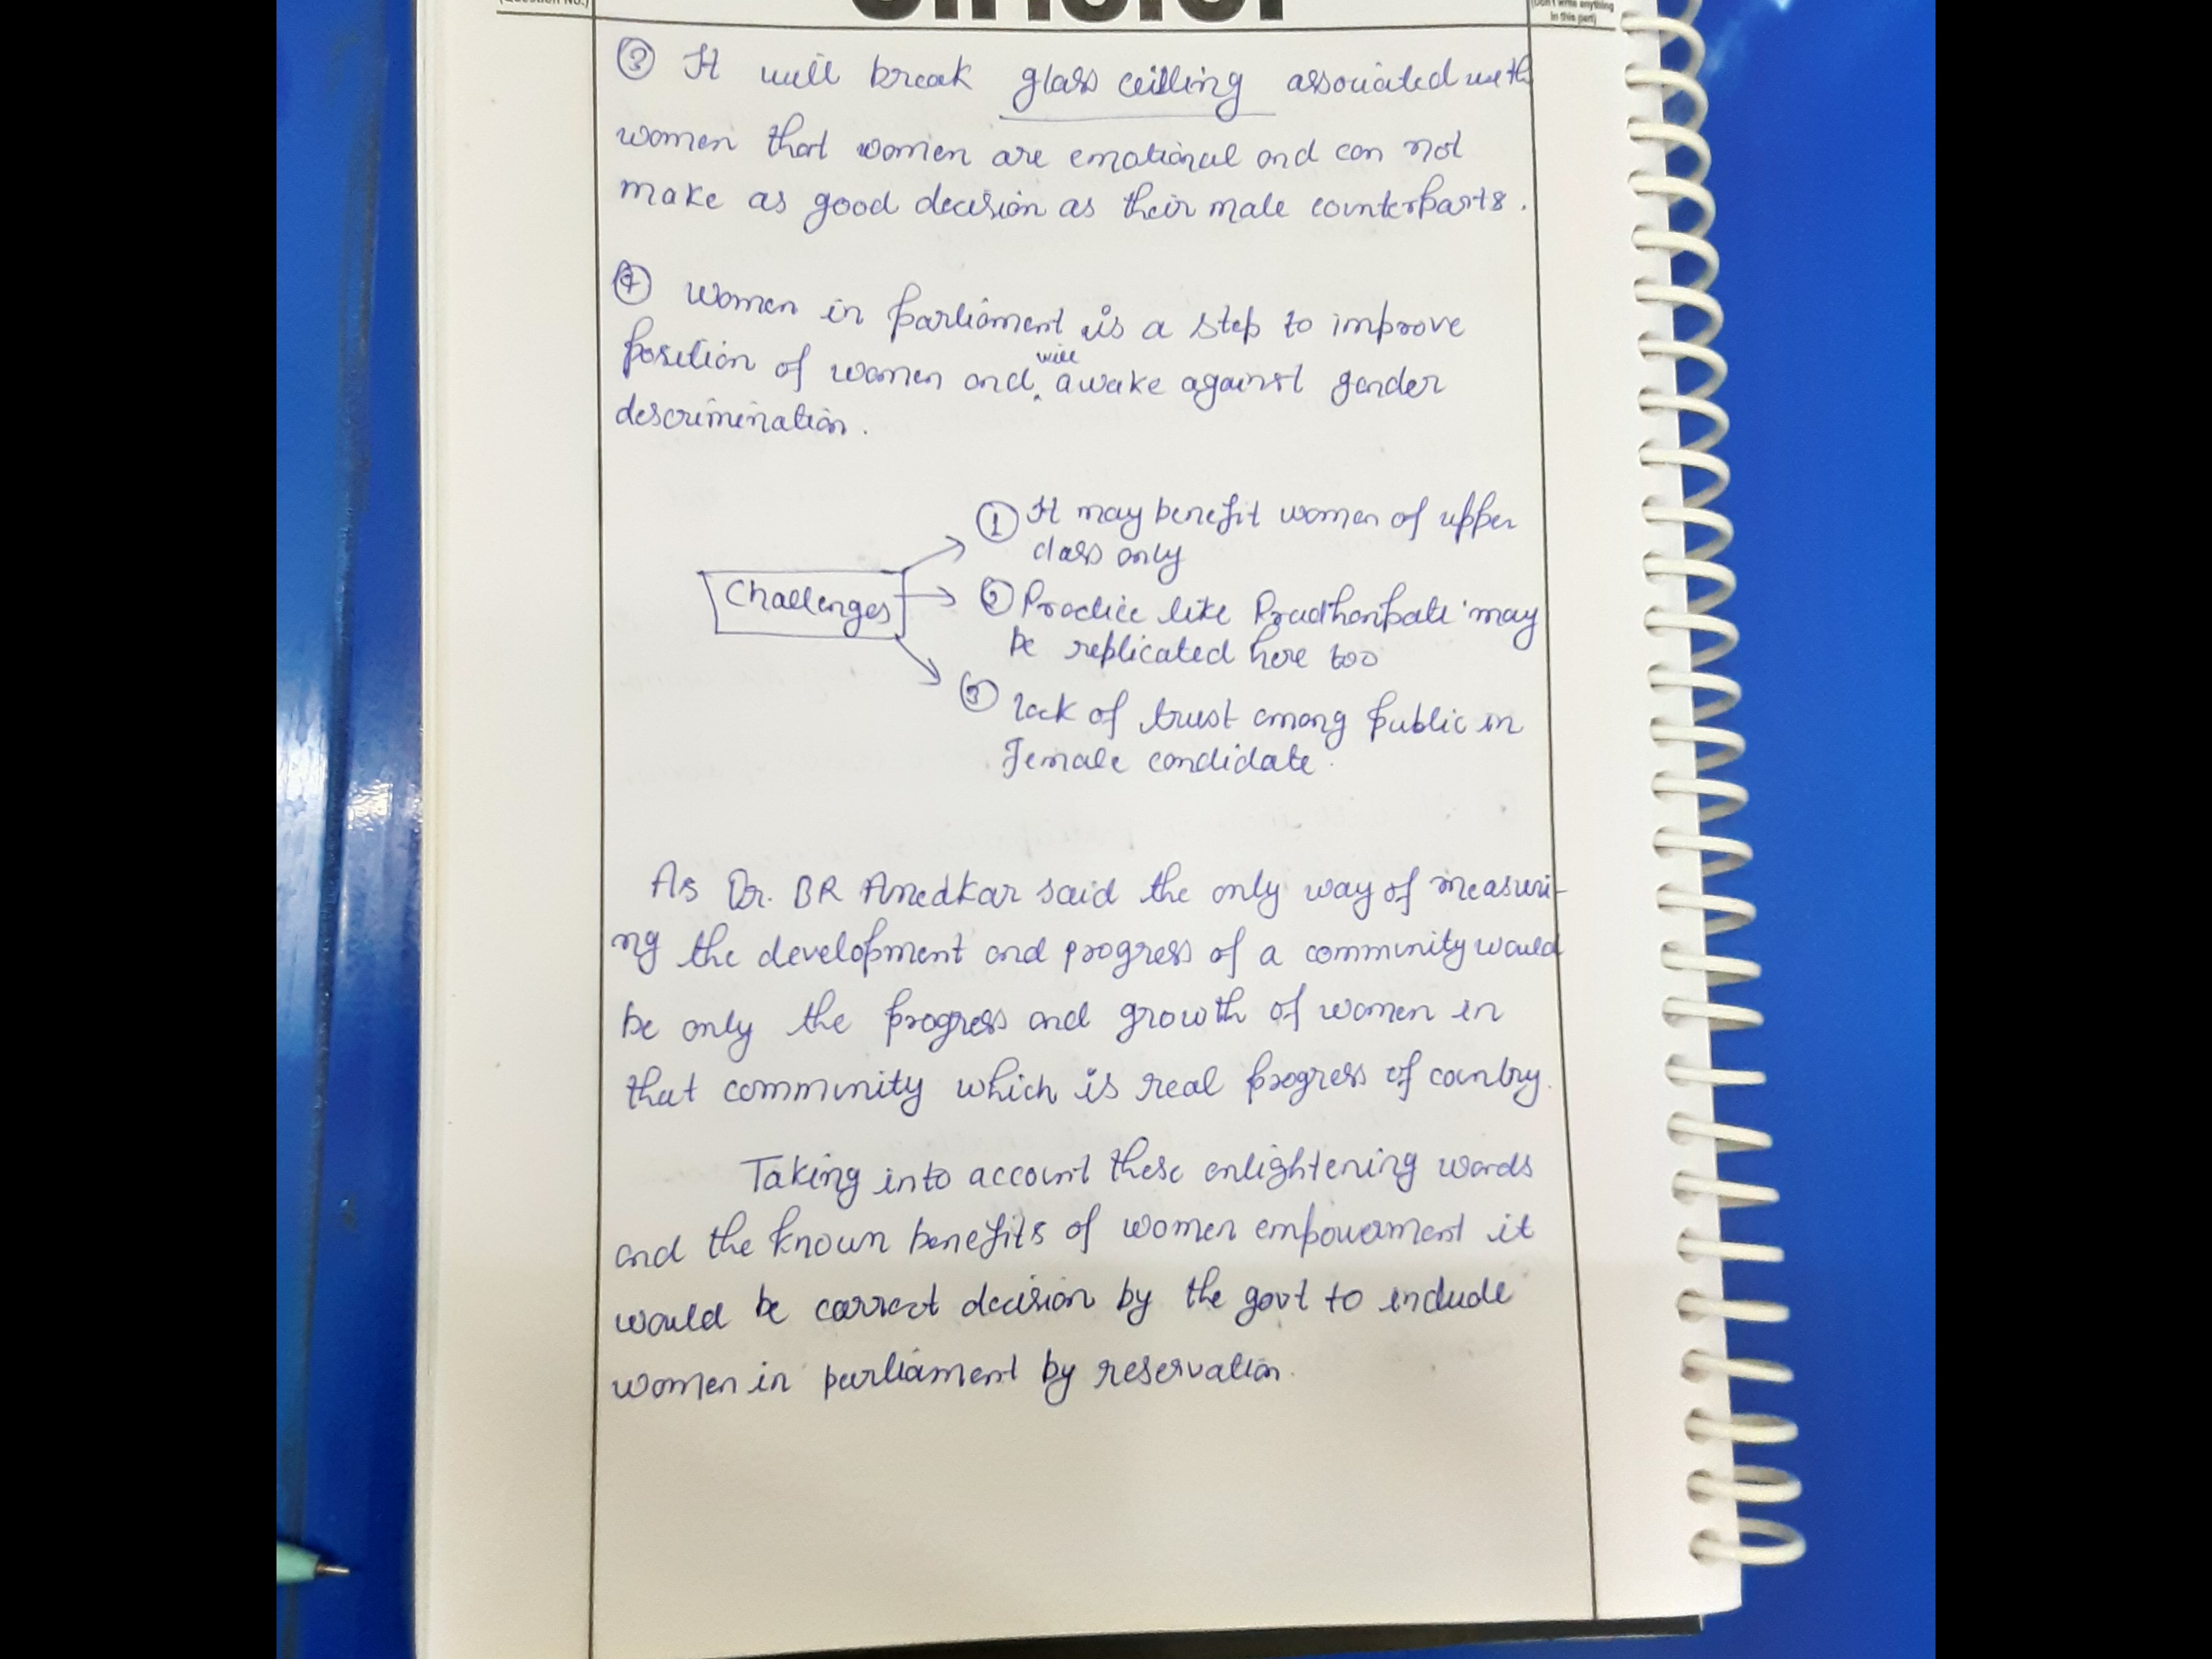 (Question No.)
(Don't write anything
in this part)
③ It will break glass ceilling associated with
women that women are emotional and can not
make as good decision as their male counterparts.
④ Women in parliament is a step to improve
position of women and will awake against gender
descrimination.
Challenges
① It may benefit women of upper
class only
② Practice like Pradhanpati may
be replicated here too
③ lack of trust among public in
Female candidate.
As Dr. BR Amedkar said the only way of measuri-
ng the development and progress of a community would
be only the progress and growth of women in
that community which is real progress of country.
Taking into account these enlightening words
and the known benefits of women empowerment it
would be correct decision by the govt to include
women in parliament by reservation.